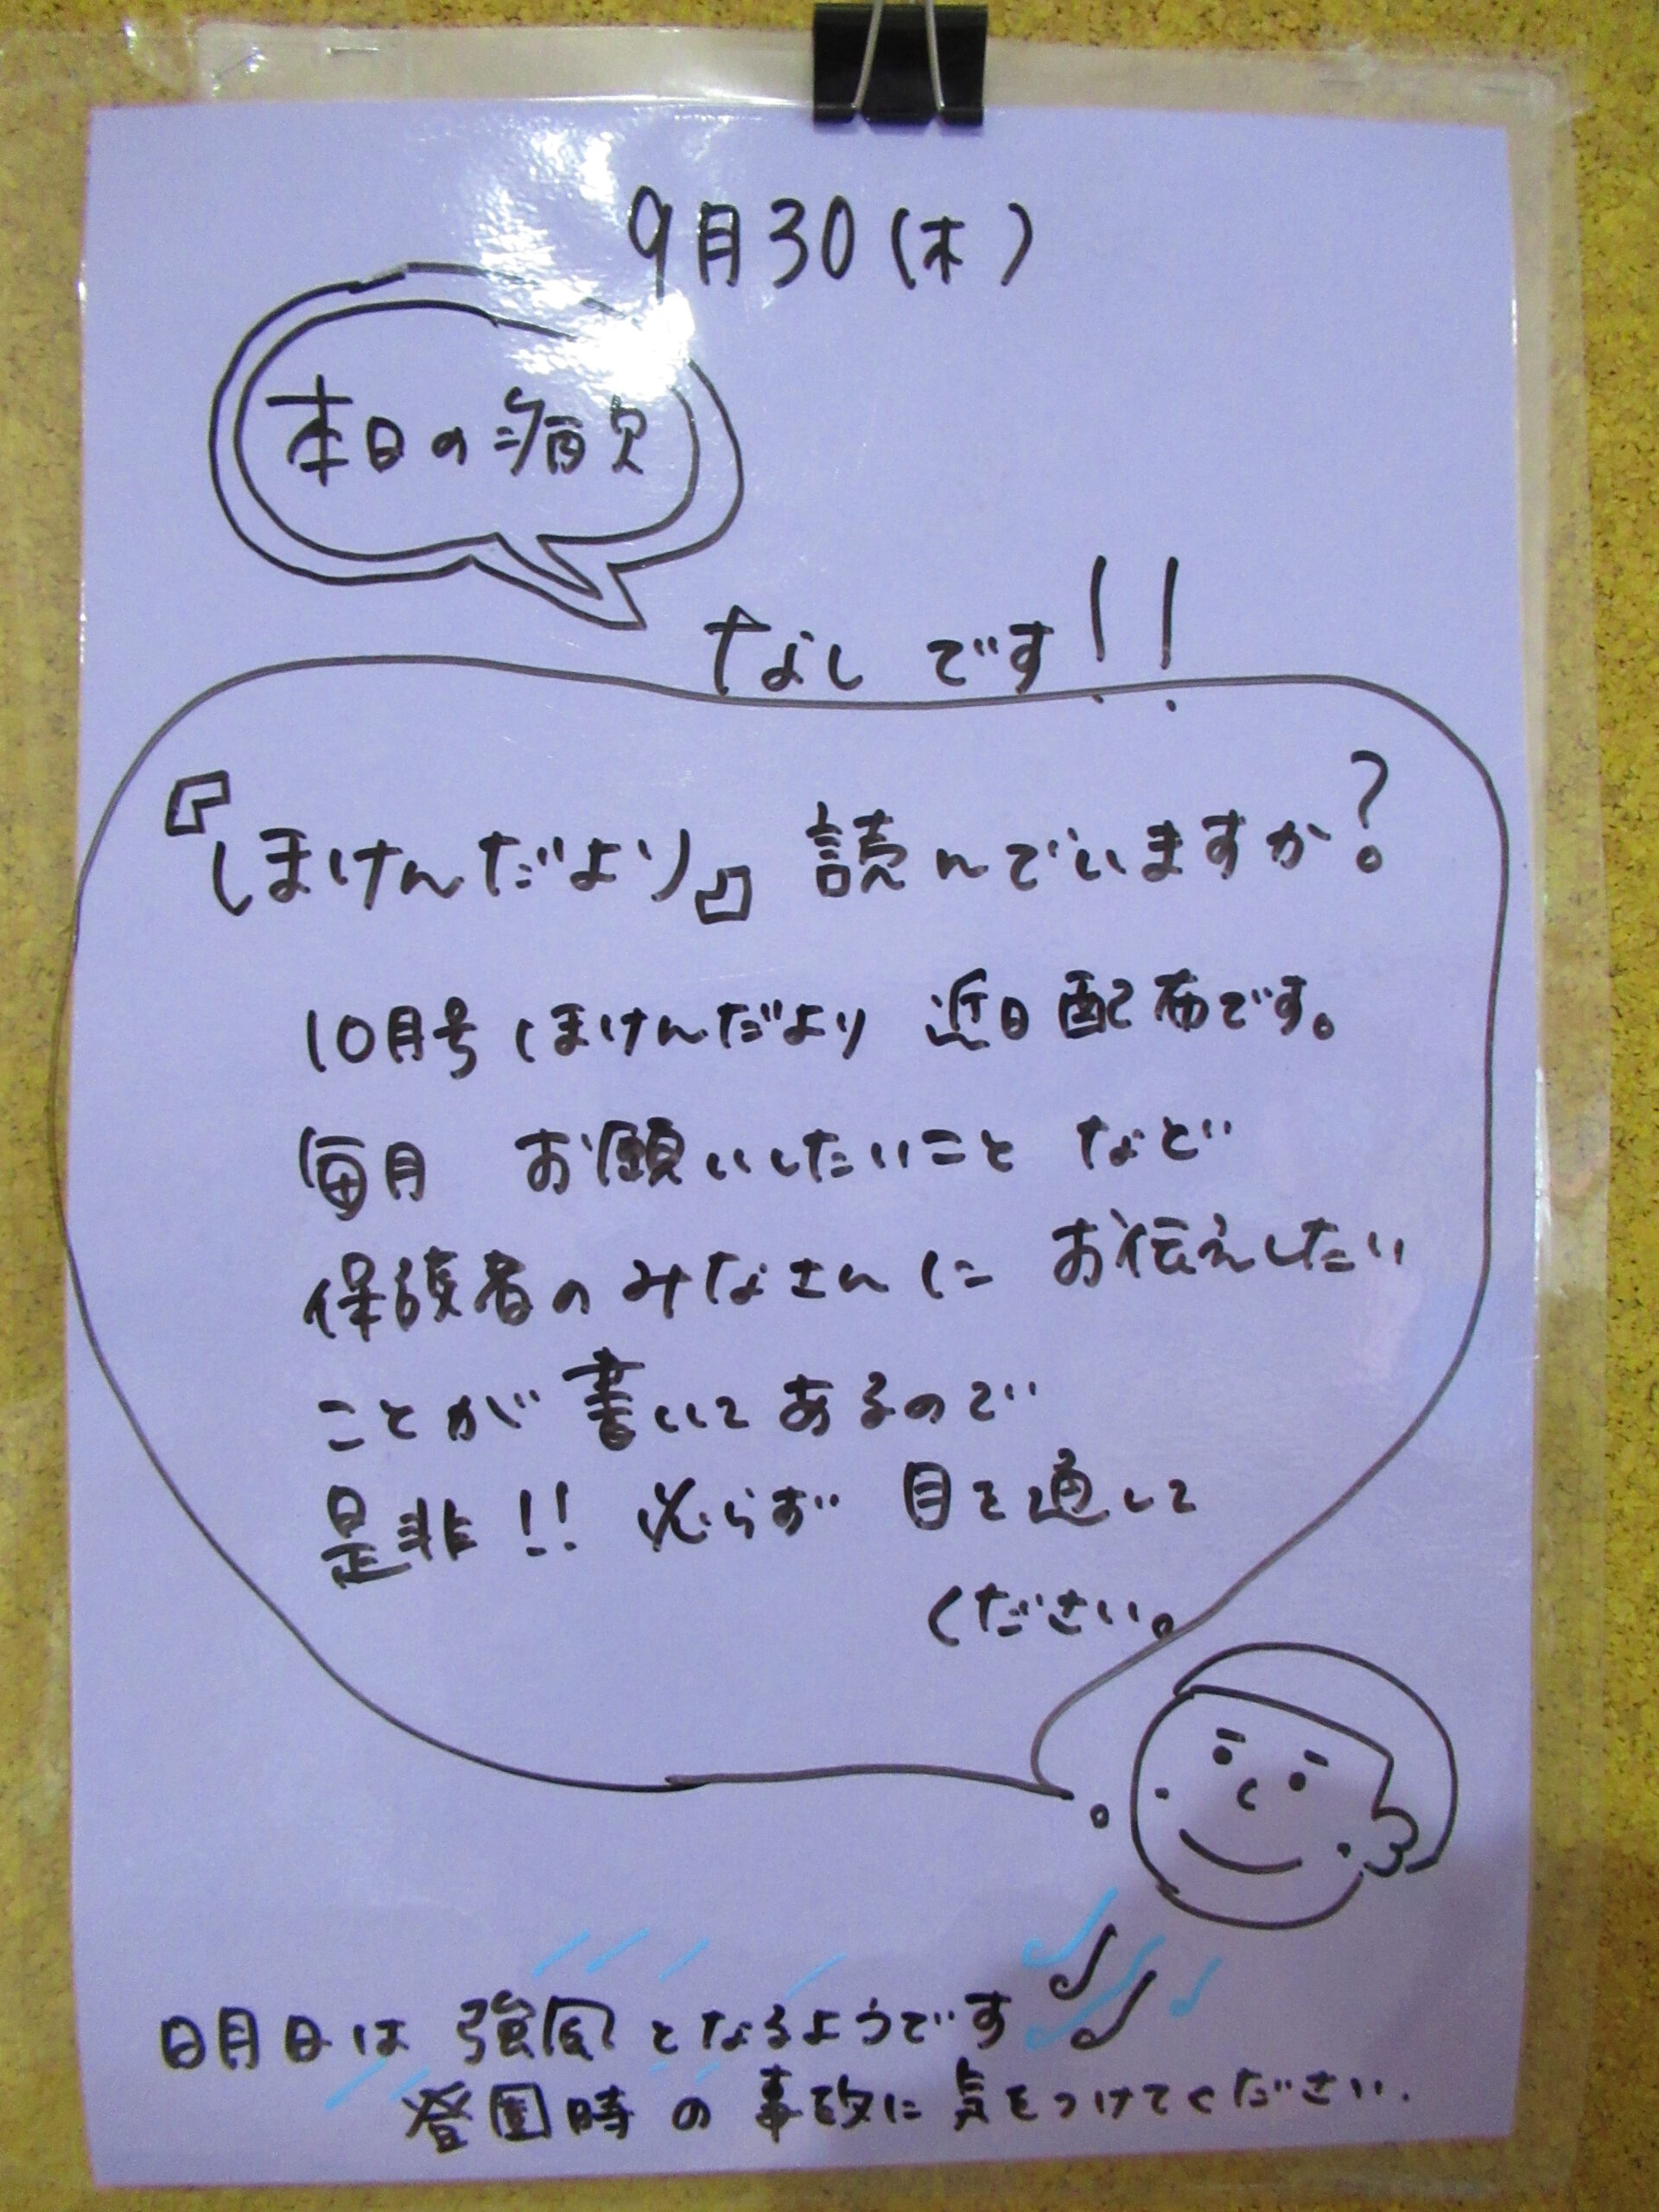 9月30(木)
本日の病欠
なしです!!
『ほけんだより』読んでいますか?
10月号ほけんだより 近日配布です。
毎月 お願いしたいこと など
保護者のみなさんに お伝えしたい
ことが書いてあるので
是非!! 必らず 目を通して
ください。
明日は 強風となるようです
登園時の事故に気をつけてください.